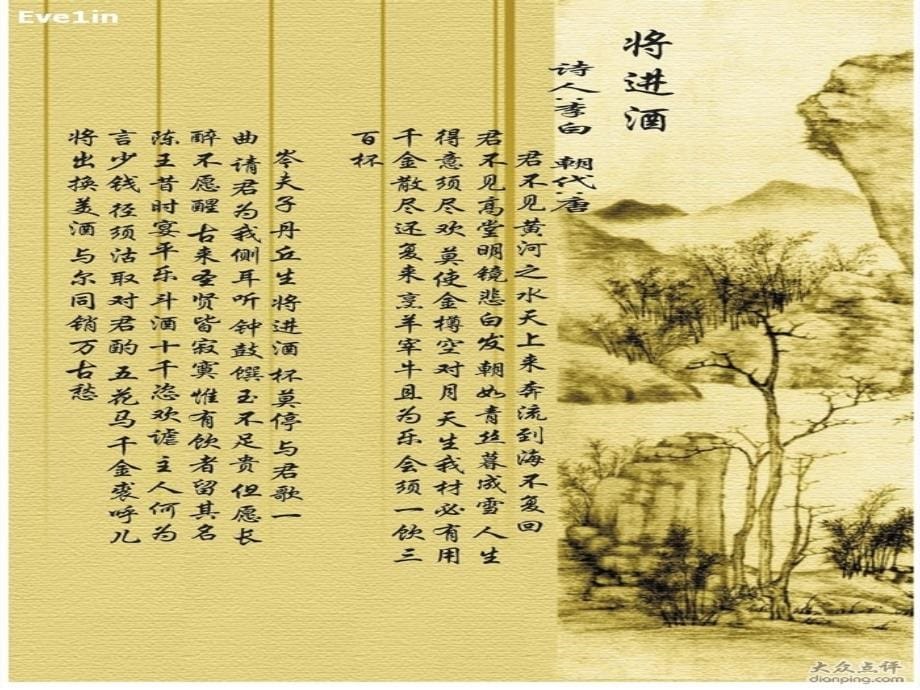 Eve1in
将进酒
诗人:李白 朝代:唐
君不见黄河之水天上来奔流到海不复回
君不见高堂明镜悲白发朝如青丝暮成雪人生
得意须尽欢莫使金樽空对月天生我材必有用
千金散尽还复来烹羊宰牛且为乐会须一饮三
百杯
岑夫子丹丘生将进酒杯莫停与君歌一
曲请君为我侧耳听钟鼓馔玉不足贵但愿长
醉不愿醒古来圣贤皆寂寞惟有饮者留其名
陈王昔时宴平乐斗酒十千恣欢谑主人何为
言少钱径须沽取对君酌五花马千金裘呼儿
将出换美酒与尔同销万古愁
大众点评
dianping.com